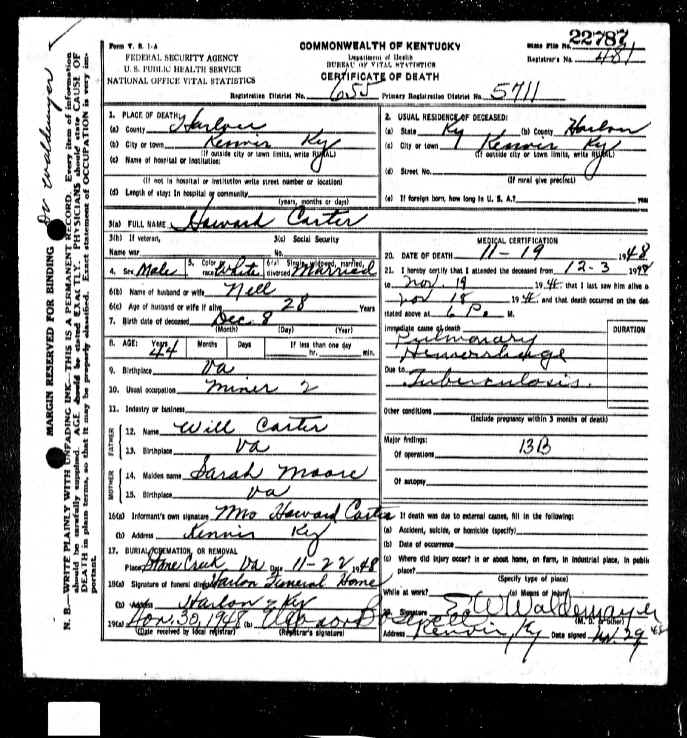 Form V. S. 1-A
FEDERAL SECURITY AGENCY
U. S. PUBLIC HEALTH SERVICE
NATIONAL OFFICE VITAL STATISTICS
COMMONWEALTH OF KENTUCKY
Department of Health
BUREAU OF VITAL STATISTICS
CERTIFICATE OF DEATH
State File No. 22787
Registrar's No. 481
Registration District No. 655 Primary Registration District No. 5711
MARGIN RESERVED FOR BINDING Dr Waldemyer
N. B.—WRITE PLAINLY WITH UNFADING INK—THIS IS A PERMANENT RECORD. Every item of information
should be carefully supplied. AGE should be stated EXACTLY. PHYSICIANS should state CAUSE OF
DEATH in plain terms, so that it may be properly classified. Exact statement of OCCUPATION is very im-
portant.
1. PLACE OF DEATH:
(a) County Harlan
(b) City or town Kenvir Ky
(If outside city or town limits, write RURAL)
(c) Name of hospital or institution:
(If not in hospital or institution write street number or location)
(d) Length of stay: In hospital or community
(years, months or days)
2. USUAL RESIDENCE OF DECEASED:
(a) State Ky (b) County Harlan
(c) City or town Kenvir Ky
(If outside city or town limits, write RURAL)
(d) Street No.
(If rural give precinct)
(e) If foreign born, how long in U. S. A.? years
3(a) FULL NAME Howard Carter
3(b) If veteran,
Name war
3(c) Social Security
No.
4. Sex Male 5. Color race White 6(a) Single, widowed, married, divorced Married
6(b) Name of husband or wife Nell
6(c) Age of husband or wife if alive 28 Years
7. Birth date of deceased Dec. 8
(Month) (Day) (Year)
8. AGE: Years 44 Months Days If less than one day
hr. min.
9. Birthplace Va
10. Usual occupation Miner 2
11. Industry or business
FATHER
12. Name Will Carter
13. Birthplace Va
MOTHER
14. Maiden name Sarah Moore
15. Birthplace Va
16(a) Informant's own signature Mrs Howard Carter
(b) Address Kenvir Ky
17. BURIAL, CREMATION, OR REMOVAL
Place Stone Creek, Va Date 11-22 1948
18(a) Signature of funeral director Harlan Funeral Home
(b) Address Harlan Ky
19(a) Nov. 30, 1948 (b) Boswell
(Date received by local registrar) (Registrar's signature)
MEDICAL CERTIFICATION
20. DATE OF DEATH 11-19 1948
21. I hereby certify that I attended the deceased from 12-3 1948
to Nov. 19 1948 that I last saw him alive o
Nov 18 1948 and that death occurred on the dat
stated above at 6 P. M.
Immediate cause of death
DURATION
Pulmonary
Hemorrhage
Due to Tuberculosis.
Other conditions
(Include pregnancy within 3 months of death)
Major findings:
Of operations 13B
Of autopsy
If death was due to external causes, fill in the following:
(a) Accident, suicide, or homicide (specify)
(b) Date of occurrence
(c) Where did injury occur? in or about home, on farm, in industrial place, in public
place?
(Specify type of place)
While at work? (e) Means of injury
Signature E W Waldemayer
(M. D. or other)
Address Kenvir, Ky Date signed Nov. 29 48